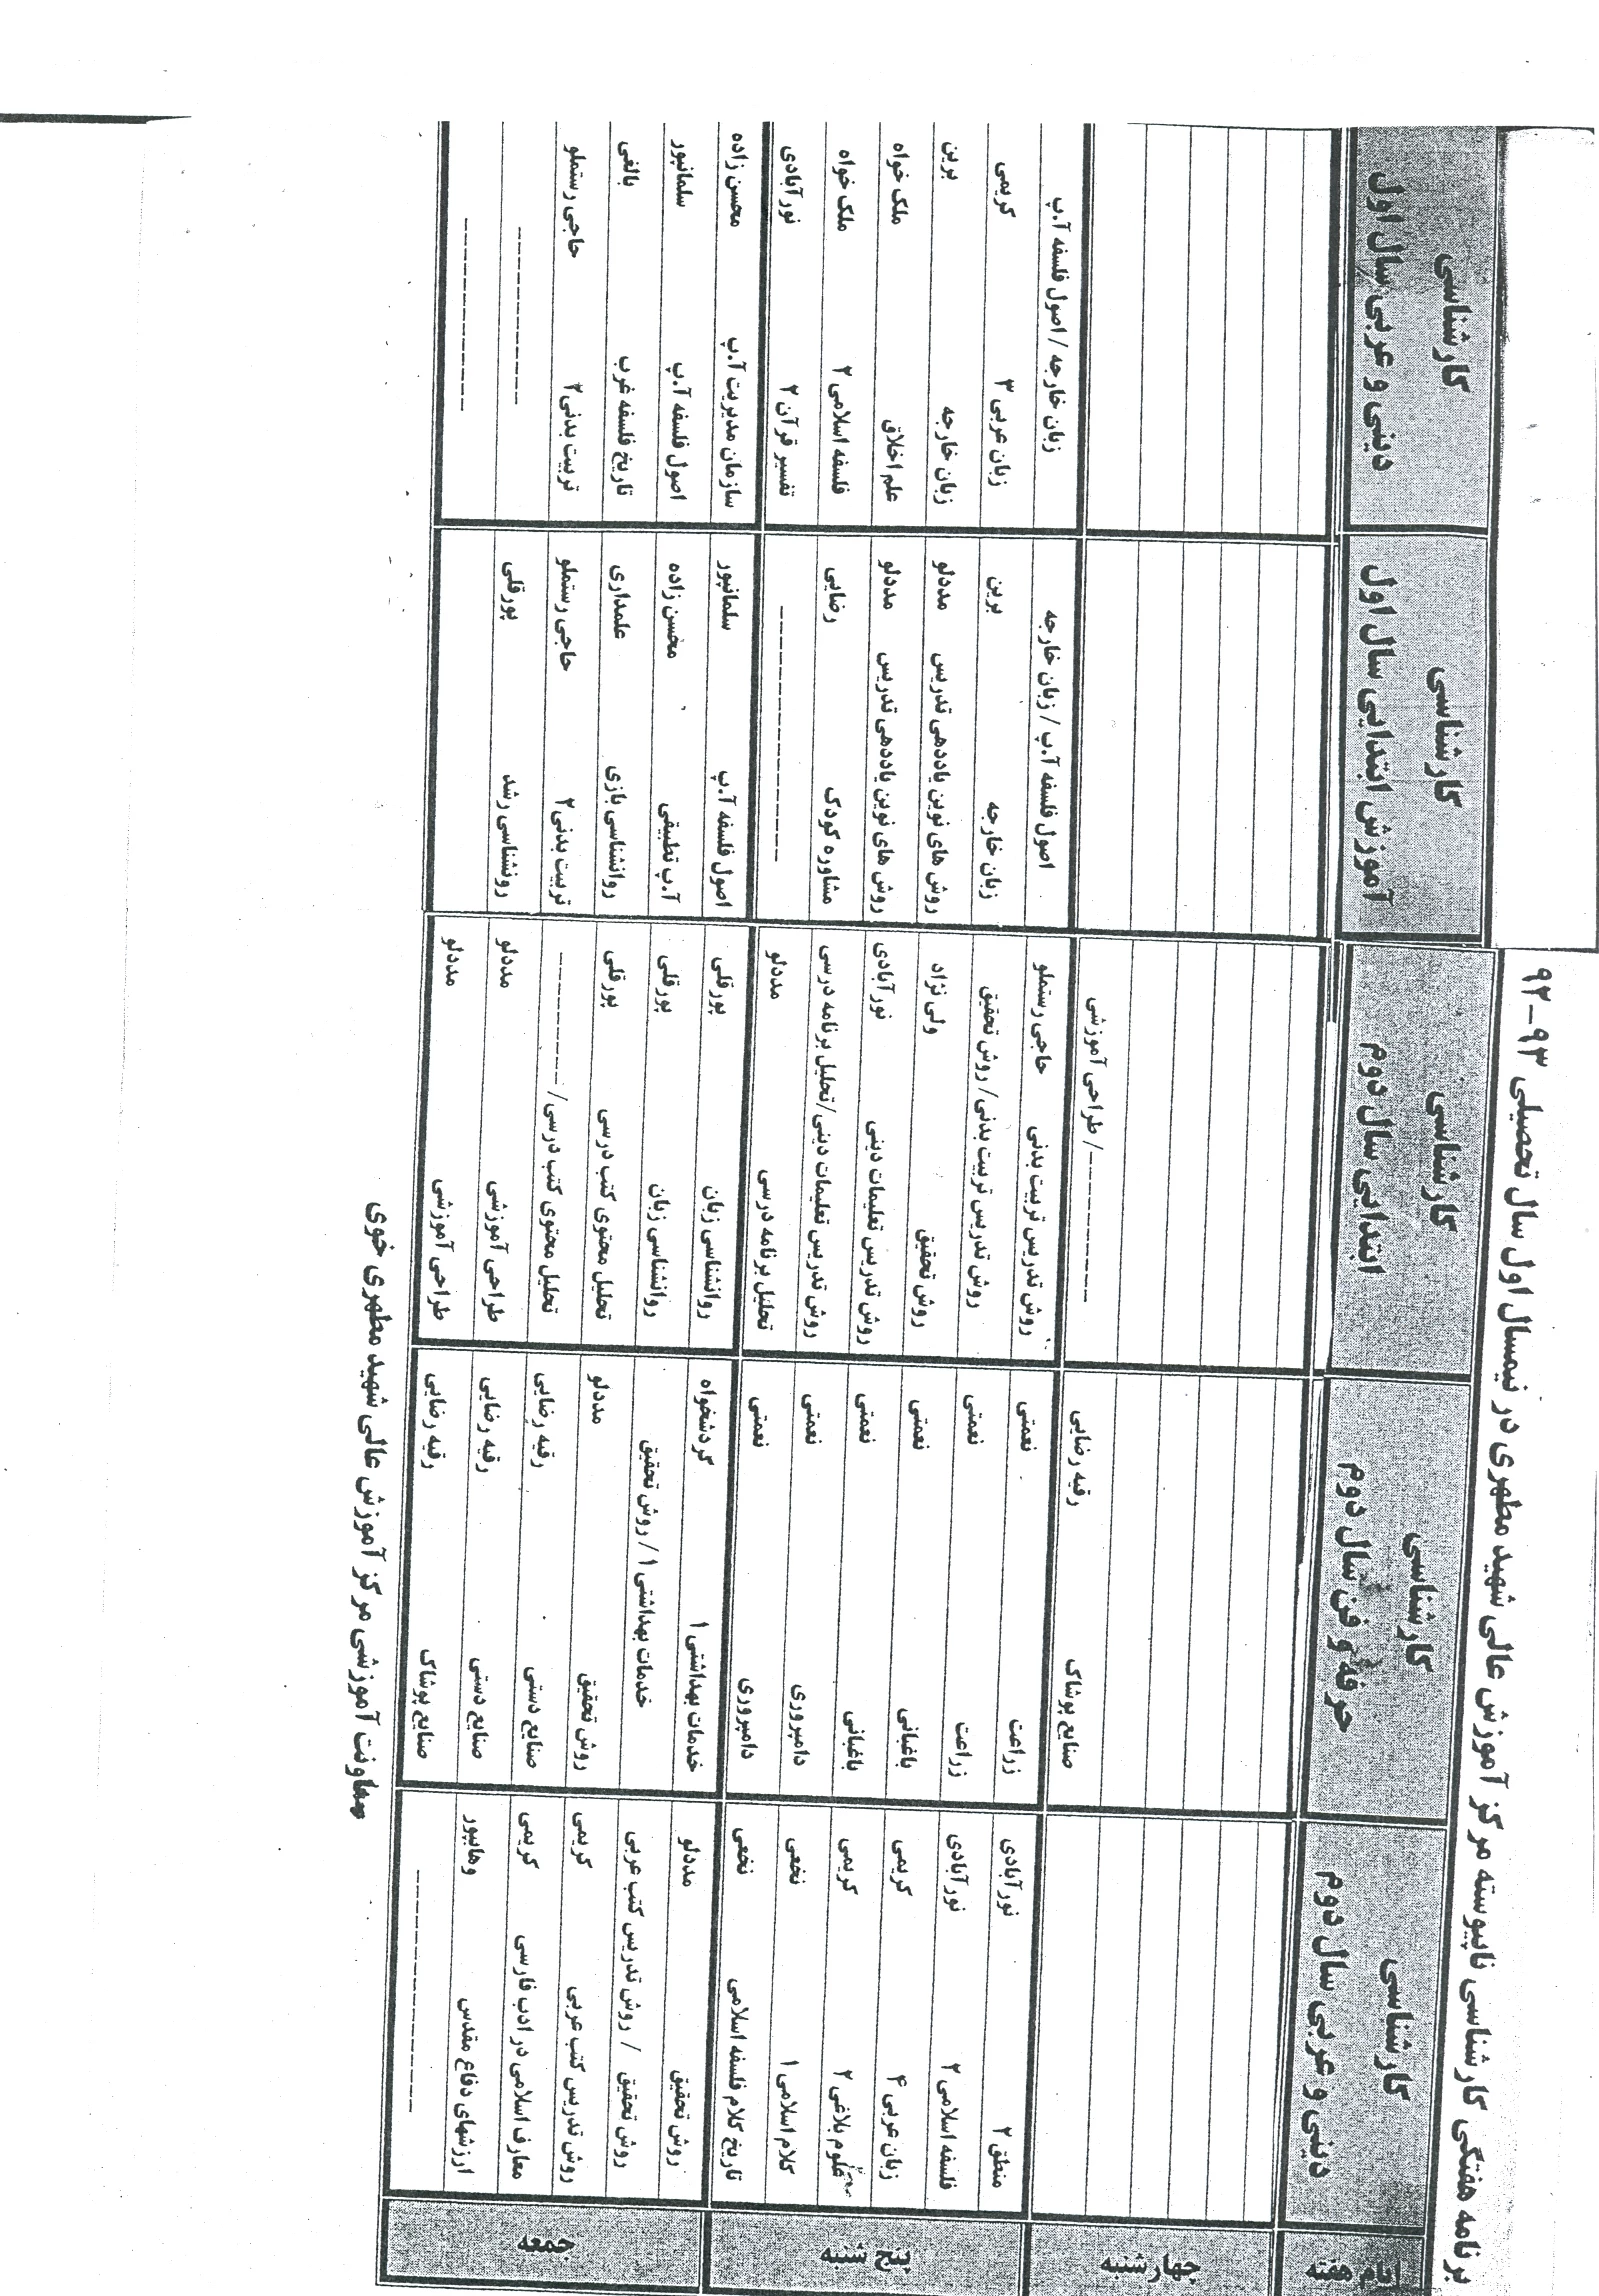 برنامه هفتگی کارشناسی ناپیوسته مرکز آموزش عالی شهید مطهری در نیمسال اول سال تحصیلی ۹۳-۹۲
ایام هفته کارشناسی دینی و عربی سال دوم کارشناسی حرفه و فن سال دوم کارشناسی ابتدایی سال دوم کارشناسی آموزش ابتدایی سال اول کارشناسی دینی و عربی سال اول
چهارشنبه
صنایع پوشاک رقیه رضایی ------------/ طراحی آموزشی
پنج شنبه
منطق ۲ نورآبادی زراعت نعمتی روش تدریس تربیت بدنی حاجی رستملو اصول فلسفه آ.پ / زبان خارجه زبان خارجه / اصول فلسفه آ.پ
فلسفه اسلامی ۲ نورآبادی زراعت نعمتی روش تدریس تربیت بدنی/ روش تحقیق زبان خارجه برین زبان عربی ۳ کریمی
زبان عربی ۴ کریمی باغبانی نعمتی روش تحقیق ولی نژاد روش های نوین یاددهی تدریس مددلو زبان خارجه برین
علوم بلاغی ۲ کریمی باغبانی نعمتی روش تدریس تعلیمات دینی نورآبادی روش های نوین یاددهی تدریس مددلو علم اخلاق ملک خواه
کلام اسلامی ۱ نخعی دامپروری نعمتی روش تدریس تعلیمات دینی/تحلیل برنامه درسی مشاوره کودک رضایی فلسفه اسلامی ۲ ملک خواه
تاریخ کلام فلسفه اسلامی نخعی دامپروری نعمتی تحلیل برنامه درسی مددلو ------------------ تفسیر قرآن ۲ نورآبادی
جمعه
روش تحقیق مددلو خدمات بهداشتی ۱ گردشخواه روانشناسی زبان پورقلی اصول فلسفه آ.پ سلمانپور سازمان مدیریت آ.پ محسن زاده
روش تحقیق / روش تدریس کتب عربی خدمات بهداشتی ۱ / روش تحقیق روانشناسی زبان پورقلی آ.پ تطبیقی محسن زاده اصول فلسفه آ.پ سلمانپور
روش تدریس کتب عربی کریمی روش تحقیق مددلو تحلیل محتوی کتب درسی پورقلی روانشناسی بازی علمداری تاریخ فلسفه غرب بالغی
معارف اسلامی در ادب فارسی کریمی صنایع دستی رقیه رضایی تحلیل محتوی کتب درسی/ ------------ تربیت بدنی۲ حاجی رستملو تربیت بدنی۲ حاجی رستملو
ارزشهای دفاع مقدس وهابپور صنایع دستی رقیه رضایی طراحی آموزشی مددلو رونشناسی رشد پورقلی --------------
------------------ صنایع پوشاک رقیه رضایی طراحی آموزشی مددلو ----------------
معاونت آموزشی مرکز آموزش عالی شهید مطهری خوی